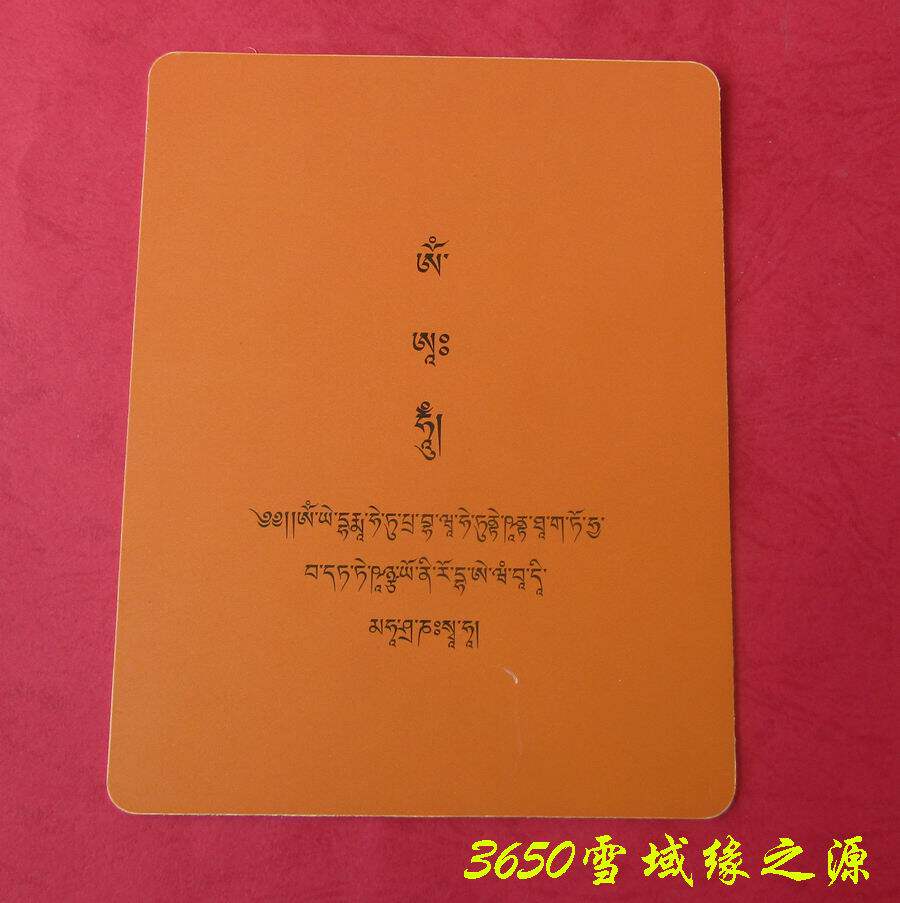 ༀ་
ཨཱཿ
ཧཱུྃ།
༄༅།།ༀ་ཡེ་དྷརྨཱ་ཧེ་ཏུ་པྲ་བྷ་ཝཱ་ཧེ་ཏུནྟེ་ཥཱནྟ་ཐཱ་ག་ཏོ་ཧྱ་
བ་དཏ་ཏེ་ཥཱཉྩ་ཡོ་ནི་རོ་དྷ་ཨེ་ཝཾ་བཱ་དཱི་
མཧཱ་ཤྲ་ཎཿསྭཱ་ཧཱ།
3650雪域缘之源